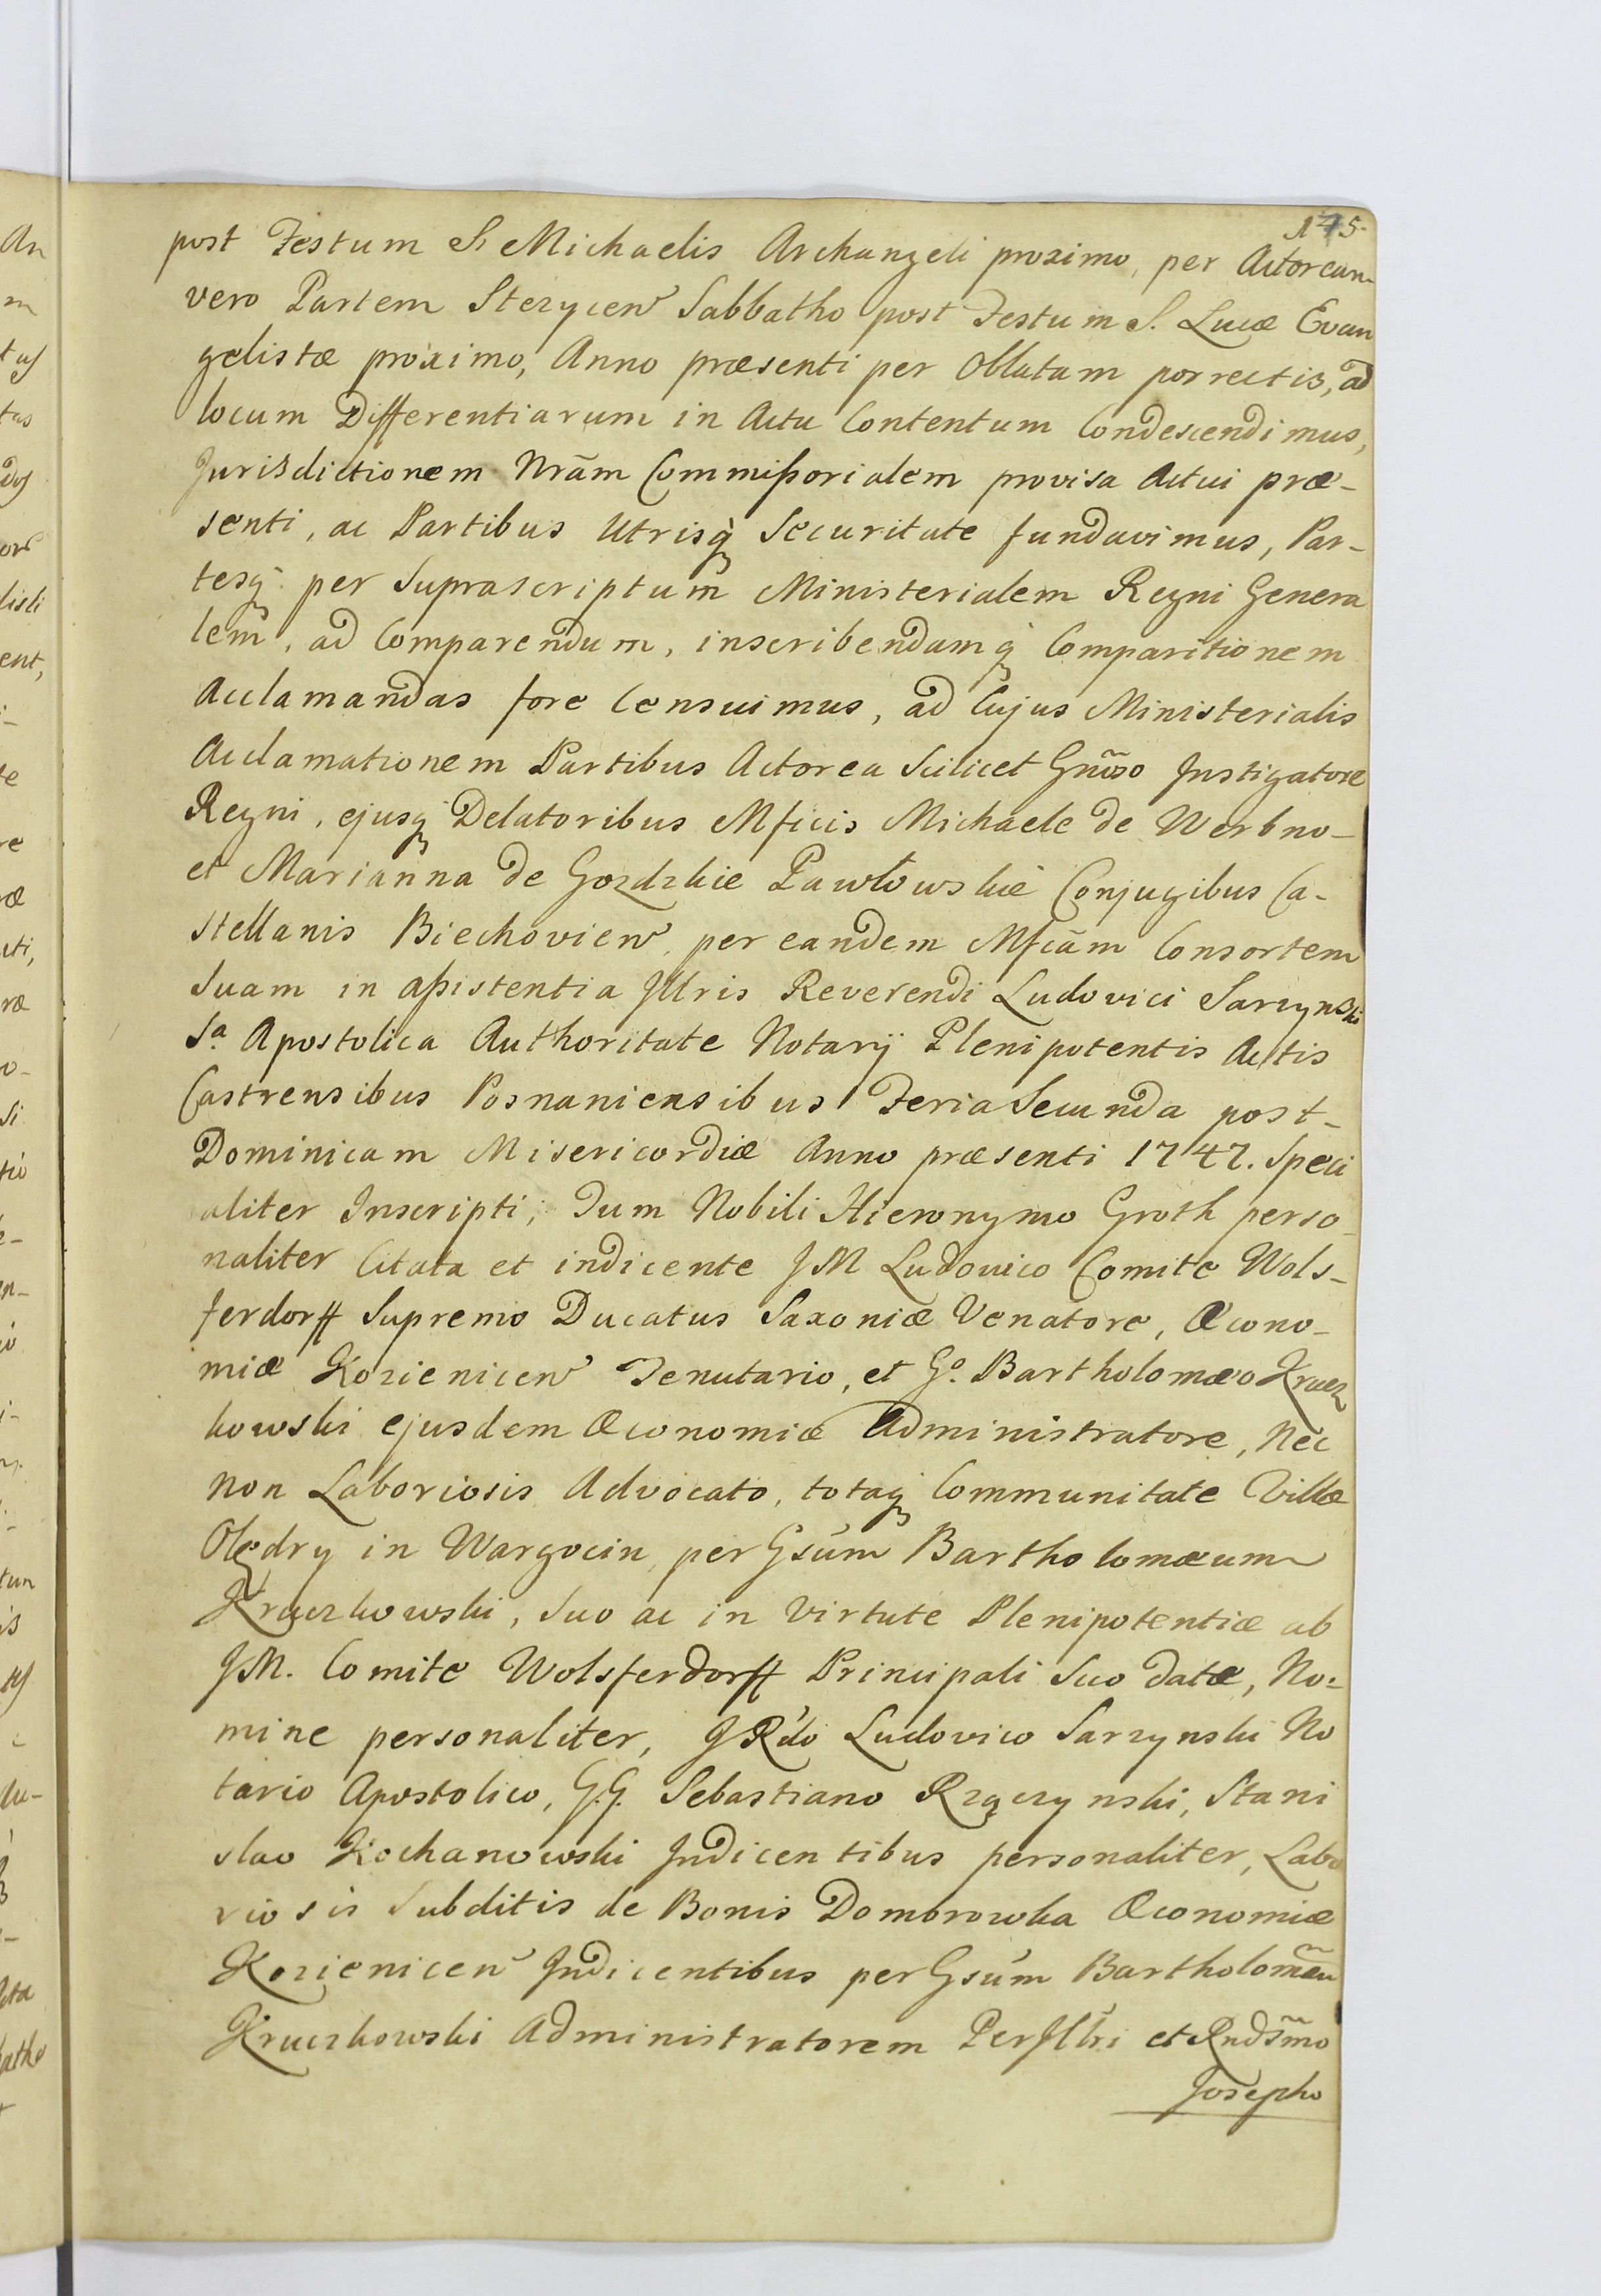 175.
post Festum S. Michaelis Archangeli proximo, per Actoream
vero Partem Stezycen Sabbatho post Festum S. Lucæ Evan
gelistæ proximo, Anno præsenti per Oblatam porrectis, ad
locum Differentiarum in Actu Contentum Condescendimus,
Jurisdictionem Nrãm Commissorialem provisa Actui præ-
senti, ac Partibus Utrisq Securitate fundavimus, Par-
tesq per Suprascriptum Ministerialem Regni Genera
lem, ad Comparendum, inscribendamq Comparitionem
Acclamandas fore Censuimus, ad Cujus Ministerialis
Acclamationem Partibus Actorea Scilicet Gnõso Instigatore
Regni, ejusq Delatoribus Mficis Michaele de Werbno-
et Marianna de Gozdzkie Pawłowskie Conjugibus Ca-
stellanis Biechovien per eandem Mficãm Consortem
Suam in assistentia Jllris Reverendi Ludovici Sarzynski
Sa. Apostolica Authoritate Notarij Plenipotentis Actis
Castrensibus Posnaniensibus Feria Secunda post-
Dominicam Misericordiæ Anno præsenti 1747. Speci
aliter Inscripti; Tum Nobili Hieronymo Groth perso
naliter Citata et indicente JM Ludovico Comite Wols-
ferdorff Supremo Ducatus Saxoniæ Venatore, Œcono-
miæ Kozienicen Tenutario, et Go. Bartholomæo Krucz
kowski ejusdem Œconomiæ Administratore, Nec
non Laboriosis Advocato, totaq Communitate Villæ
Olędry in Wargocin per Gsum Bartholomæum
Kruczkowski, Suo ac in Virtute Plenipotentiæ ab
JM. Comite Wolsferdorff Principali Suo datæ, No=
mine personaliter, JRdo Ludovico Sarzynski No
tario Apostolico, G.G. Sebastiano Rzączynski, Stani
slao Kochanowski Indicentibus personaliter, Labo
riosis Subditis de Bonis Dombrowka Œconomiæ
Kozienicen Indicentibus per Gsum Bartholomæũ
Kruczkowski Administratorem PerJllri et Rndsm̃o
Josepho